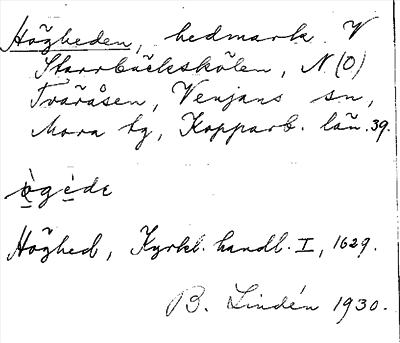 Högheden, hedmark V
Starrbäckskölen, N (O)
Tvåråsen, Venjans sn,
Mora tg, Kopparb. län. 39.
ògède
Höghed, Kyrkl. handl. I, 1629.
B. Lindén 1930.